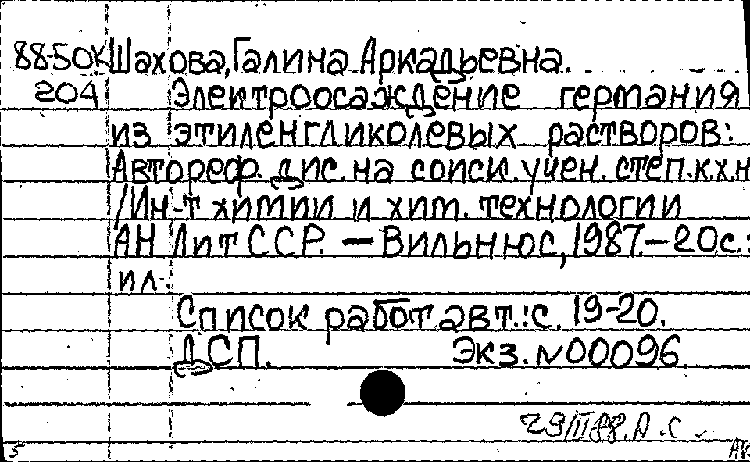 88-50К Шахова, Галина Аркадьевна.
204 Электроосаждение германия
из этиленгликолевых растворов:
Автореф. дис. на соиск. учен. степ. к.х.н
/Ин-т химии и хим. технологии
АН Лит ССР. — Вильнюс, 1987. — 20с.:
ил.
Список работ авт.: с. 19-20.
ДСП. Экз. N00096.
29/III 88. А. С.
5